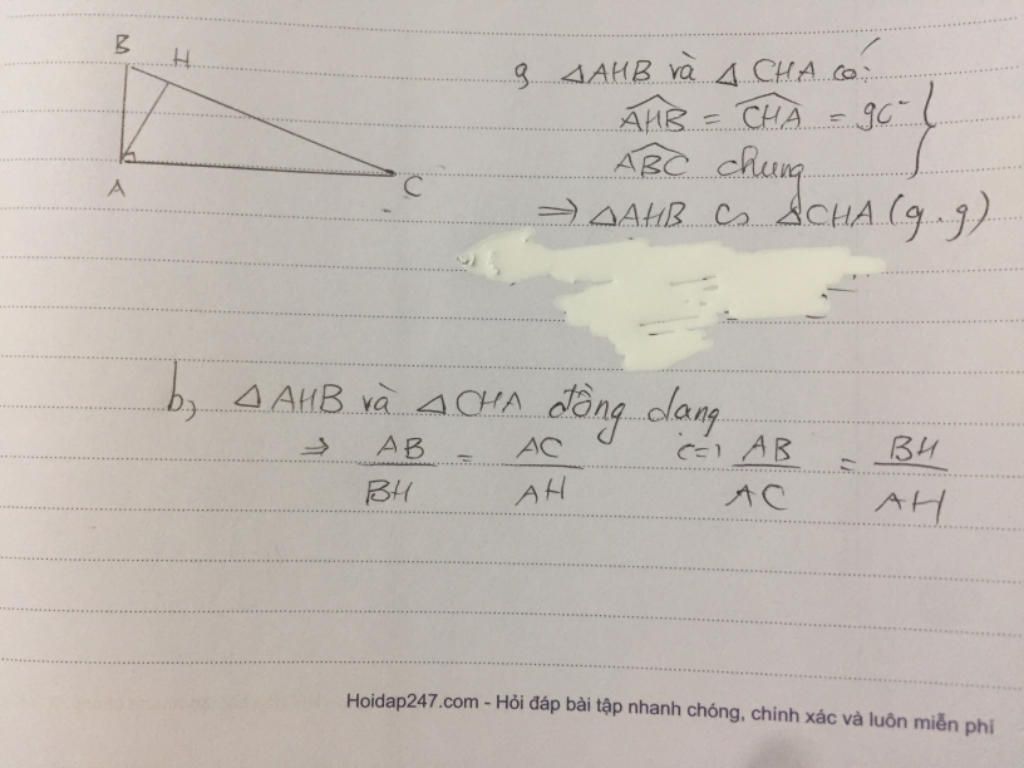 B
H
A
C
a, △AHB và △CHA có:
AHB = CHA = 90°
ABC chung
⇒ △AHB ∽ △CHA (g.g)
b, △AHB và △CHA đồng dạng
⇒ AB/BH = AC/AH ⇔ AB/AC = BH/AH
Hoidap247.com - Hỏi đáp bài tập nhanh chóng, chính xác và luôn miễn phí